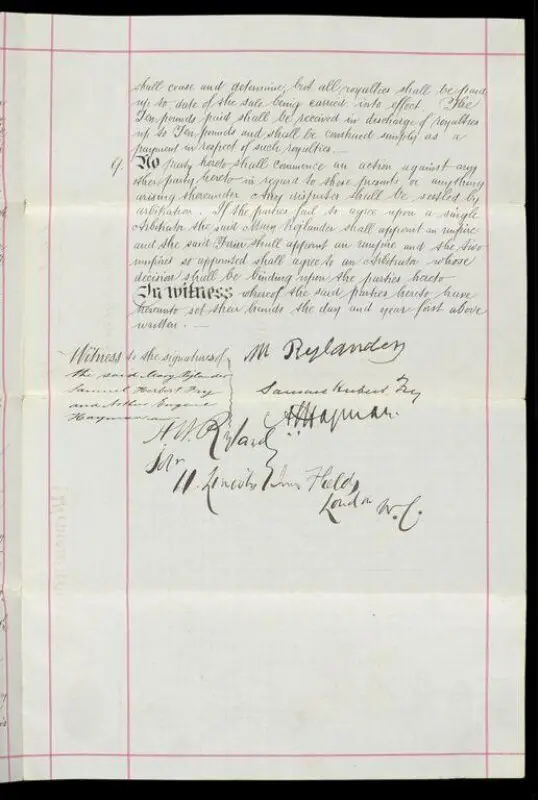 shall cease and determine, but all royalties shall be paid
up to date of the sale being carried into effect. The
Ten pounds paid shall be received in discharge of royalties
up to Ten pounds and shall be construed simply as a
payment in respect of such royalties.—
9. No party hereto shall commence an action against any
other party hereto in regard to these presents or anything
arising thereunder. Any disputes shall be settled by
arbitration. If the parties fail to agree upon a single
Arbitrator the said Mary Rylander shall appoint an umpire
and the said Firm shall appoint an umpire and the two
umpires so appointed shall agree to an Arbitrator whose
decision shall be binding upon the parties hereto
In witness whereof the said parties hereto have
hereunto set their hands the day and year first above
written.—
Witness to the signatures of
the said Mary Rylander
Samuel Herbert Fry
and Arthur Eugene
Hayman
M Rylander
Samuel Herbert Fry
A E Hayman.
A. W. Ryland
Solr
11. Lincolns Inn Fields
London W.C.